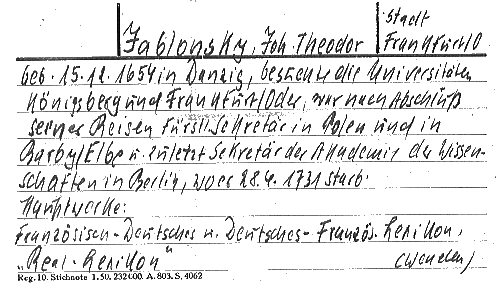 Stadt
Jablonsky, Joh. Theodor Frankfurt/O
geb. 15.12.1654 in Danzig, besuchte die Universitäten
Königsberg und Frankfurt/Oder, war nach Abschluß
seiner Reisen fürstl. Sekretär in Polen und in
Barby/Elbe u. zuletzt Sekretär der Akademie der Wissen-
schaften in Berlin, wo er 28.4.1731 starb.
Hauptwerke:
Französisch-Deutsches u. Deutsches-Französ. Lexikon,
"Real-Lexikon"
Reg. 10. Stichnote 1. 50. 232000. A. 803. S. 4062